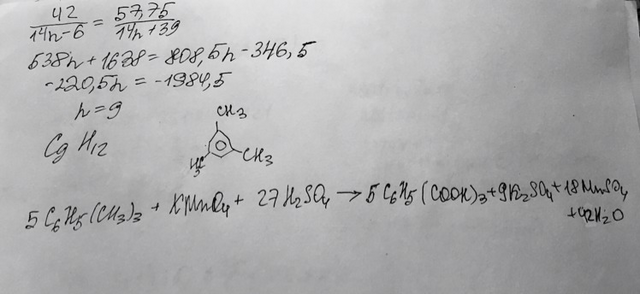 42/(14n-6) = 57,75/(14n+39)
538n + 1638 = 808,5n - 346,5
-220,5n = -1984,5
n = 9
C9H12
CH3
H3C
CH3
5C6H5(CH3)3 + KMnO4 + 27H2SO4 → 5C6H5(COOH)3 + 9K2SO4 + 18MnSO4
+42H2O